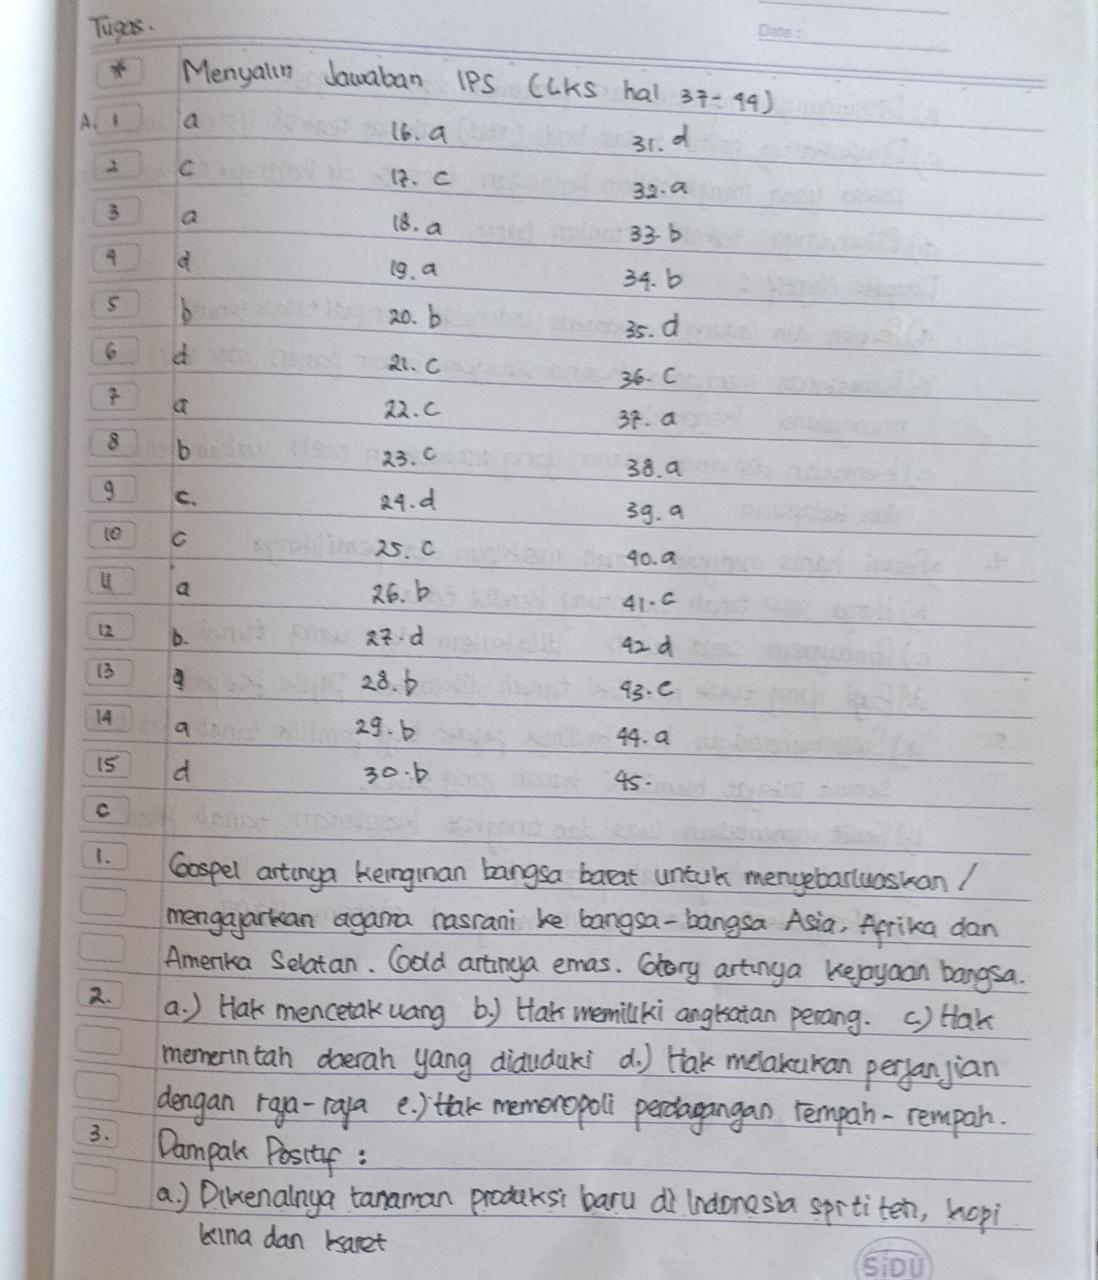 Tugas.
Date :
* Menyalin Jawaban IPS (LKS hal 37-44)
A. 1 a 16. a 31. d
2 c 17. c 32. a
3 a 18. a 33. b
4 d 19. a 34. b
5 b 20. b 35. d
6 d 21. c 36. c
7 a 22. c 37. a
8 b 23. c 38. a
9 c. 24. d 39. a
10 c 25. c 40. a
11 a 26. b 41. c
12 b. 27. d 42 d
13 28. b 43. c
14 a 29. b 44. a
15 d 30. b 45.
C
1. Gospel artinya keinginan bangsa barat untuk menyebarluaskan /
mengajarkan agama nasrani ke bangsa-bangsa Asia, Afrika dan
Amerika Selatan. Gold artinya emas. Glory artinya kejayaan bangsa.
2. a.) Hak mencetak uang b.) Hak memiliki angkatan perang. c.) Hak
memerintah daerah yang diduduki d.) Hak melakukan perjanjian
dengan raja-raja e.) Hak memonopoli perdagangan rempah-rempah.
3. Dampak Positif :
a.) Dikenalnya tanaman produksi baru di Indonesia sprti teh, kopi
kina dan karet
SiDU